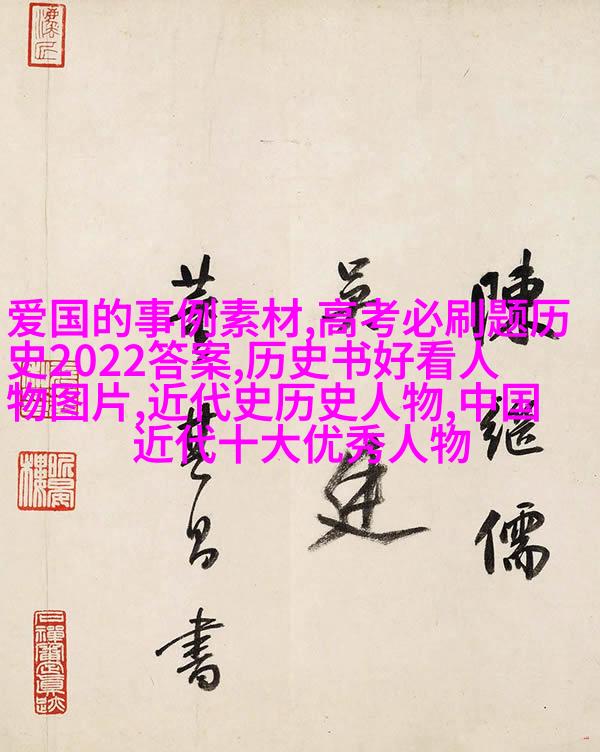 爱国的事例素材,高考必刷题历
史2022答案,历史书好看人
物图片,近代史历史人物,中国
近代十大优秀人物
陳繼儒
吳廷
董其昌書